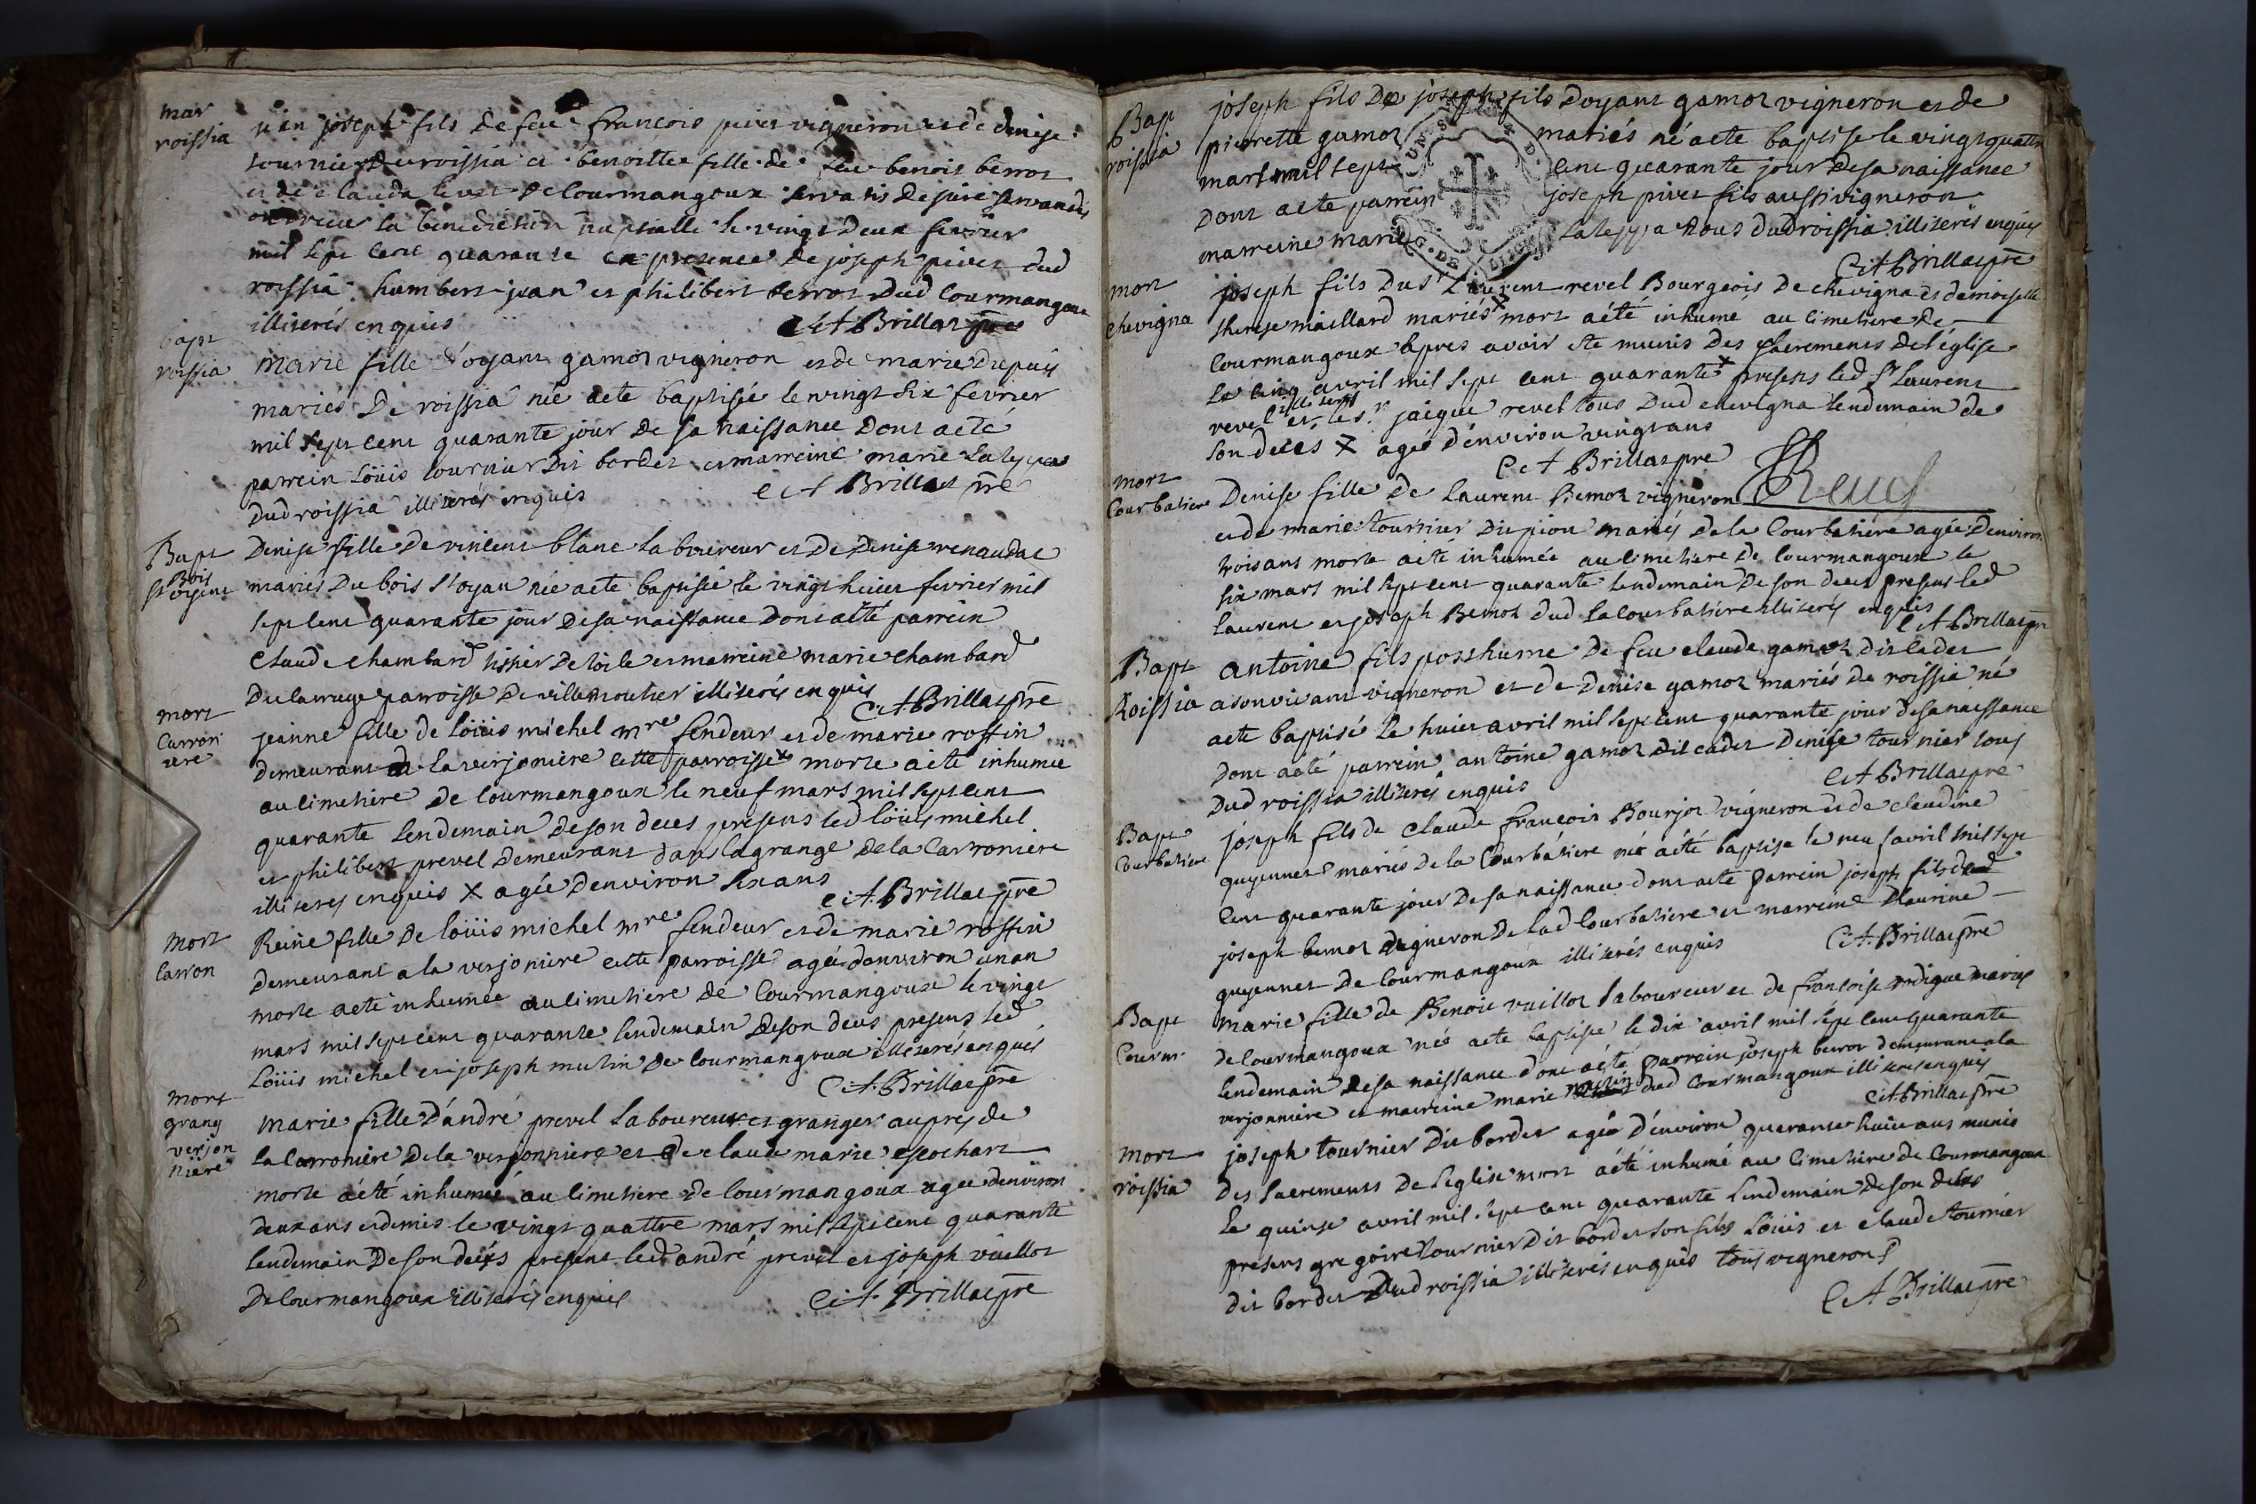 mar
roissia
jean joseph fils de feu francois pivet vigneron et de denise
tournier de roissia et benoitte fille de feu benoit berrot
et de claude levet de Courmangoux servatis de jure servandis
ont receu la benediction nuptialle le vingt deux fevrier
mil sept cent quarante en presence de joseph pivet dud
roissia humbert jvan et philibert berrot dud Courmangoux
illiterés enquis C: A Brillat ptre
bapt
roissia
marie fille d'oyant gamot vigneron et de marie dupuis
mariés de roissia née a eté baptisée le vingt six fevrier
mil sept cent quarante jour de sa naissance dont acte
parrein Loüis tournier dit bordet et marreine marie
dud roissia illiterés enquis C: A Brillat ptre
Bapt
Bois
st oyent
Denise fille de vincent blanc laboureur et de Denise renaudat
mariés du bois st oyan née a eté baptisée le vingt huict fevrier mil
sept cent quarante jour de sa naissance dont acte parrein
Claude Chambard tissier de toile et marreine marie Chambard
de parroisse de villemoutier illiterés enquis
C: A Brillat ptre
mort
Carron
iere
jeanne fille de Loüis michel mre fendeur et de marie roffin
demeurant a la verjoniere cette parroisse x morte a eté inhumée
au cimetiere de Courmangoux le neuf mars mil sept cent
quarante lendemain de son deces presens led Loüis michel
et philibert prevel demeurant dans la grange de la Carroniere
illiterés enquis x agée d'environ six ans C: A Brillat ptre
mort
Carron
Reine fille de Loüis michel mre fendeur et de marie roffin
demeurant a la verjoniere cette parroisse agée d'environ un an
morte a eté inhumée au cimetiere de Courmangoux le vingt
mars mil sept cent quarante lendemain de son deces presens led
Loüis michel et joseph mutin de Courmangoux illiterés enquis
C: A. Brillat ptre
mort
grang
verjon
niere
marie fille d'andré prevel laboureur et granger aupres de
la Carroniere de la verjonniere et de claude marie escochart
morte a été inhumée au cimetiere de Courmangoux agée d'environ
deux ans et demis le vingt quattre mars mil sept cent quarante
lendemain de son decés presens led andré prevel et joseph vuillot
de Courmangoux illiterés enquis C: A Brillat ptre
Bap
roissia
joseph fils de joseph fils d'oyant gamot vigneron et de
pierrette gamot mariés né a eté baptisé le vingt quattre
mars mil sept cent quarante jour de sa naissance
dont acte parrein joseph pivet fils aussi vigneron
marreine marie tous dud roissia illiterés enquis
C: A Brillat ptre
mort
chevigna
joseph fils du sr Laurent revel Bourgeois de chevigna et demoiselle
therese maillard mariés x mort a été inhumé au cimetiere de
Courmangoux apres avoir eté munis des sacrements de l'église
le cinq avril mil sept cent quarante x presens led sr Laurent
revel et le sr jaique revel tous dud chevigna lendemain de
son deces x agé d'environ vingt ans
C: A Brillat ptre Revel
mort
Courbatiere
Denise fille de Laurent Bemot vigneron
et de marie tournier dit pion mariés de la Courbatiére agée d'environ
trois ans morte a eté inhumée au cimetiere de Courmangoux le
six mars mil sept cent quarante lendemain de son deces presens led
Laurent et joseph Bemot dud la Courbatiére illiterés enquis
C: A Brillat ptre
Bapt
Roissia
antoine fils posthume de feu claude gamot dit cadet
a son vivant vigneron et de denise gamot mariés de roissia né
a eté baptisé le huict avril mil sept cent quarante jour de sa naissance
dont acté parrein antoine gamot dit cadet denise tournier tous
dud roissia illiterés enquis C: A Brillat ptre
Bapt
Courbatiere
joseph fils de Claude francois Bourjot vigneron et de claudine
guyennet mariés de la Courbatiere né a été baptisé le neuf avril mil sept
cent quarante jour de sa naissance dont acte parrein joseph fils de
joseph bemot vigneron de lad Courbatiere et marreine Claudine
guyennet de Courmangoux illiterés enquis C: A. Brillat ptre
Bapt
Courm.
marie fille de Benoit vuillot laboureur et de francoise mariés
de Courmangoux née a eté baptisée le dix avril mil sept cent quarante
lendemain de sa naissance dont acté parrein joseph berrot demeurant a la
verjonniere et marreine marie dud Courmangoux illiterés enquis
C: A Brillat ptre
mort
roissia
joseph tournier dit bordet agé d'environ quarante huict ans munis
des sacrements de l'eglise mort a été inhumé au cimetiere de Courmangoux
le quinse avril mil sept cent quarante lendemain de son deces
presens gregoire tournier dit bordet son fils Loüis et claude tournier
dit bordet dud roissia illiterés enquis tous vignerons
C: A Brillat ptre